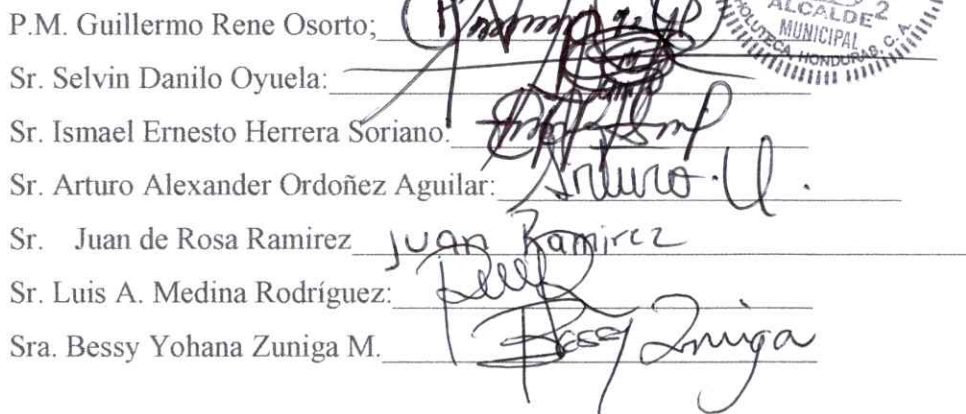 ALCALDE 2
MUNICIPAL
CHOLUTECA, HONDURAS, C. A.
P.M. Guillermo Rene Osorto;
Sr. Selvin Danilo Oyuela:
Sr. Ismael Ernesto Herrera Soriano:
Sr. Arturo Alexander Ordoñez Aguilar: Arturo. U.
Sr. Juan de Rosa Ramirez Juan Ramirez
Sr. Luis A. Medina Rodríguez:
Sra. Bessy Yohana Zuniga M. Bessy Zuniga